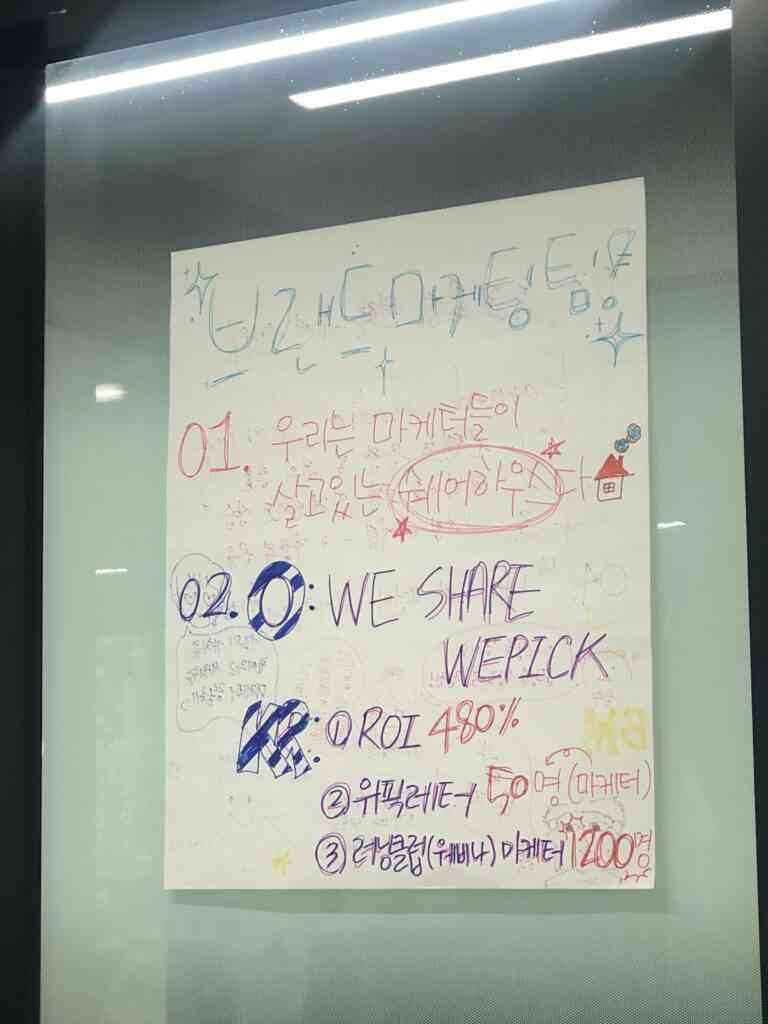 브랜드마케팅팀!
01. 우리는 마케터들이
살고있는 쉐어하우스다
02. O: WE SHARE
WEPICK
KR: ① ROI 480%
② 위픽레터 50명 (마케터)
③ 러닝클럽(웨비나) 마케터 1200명